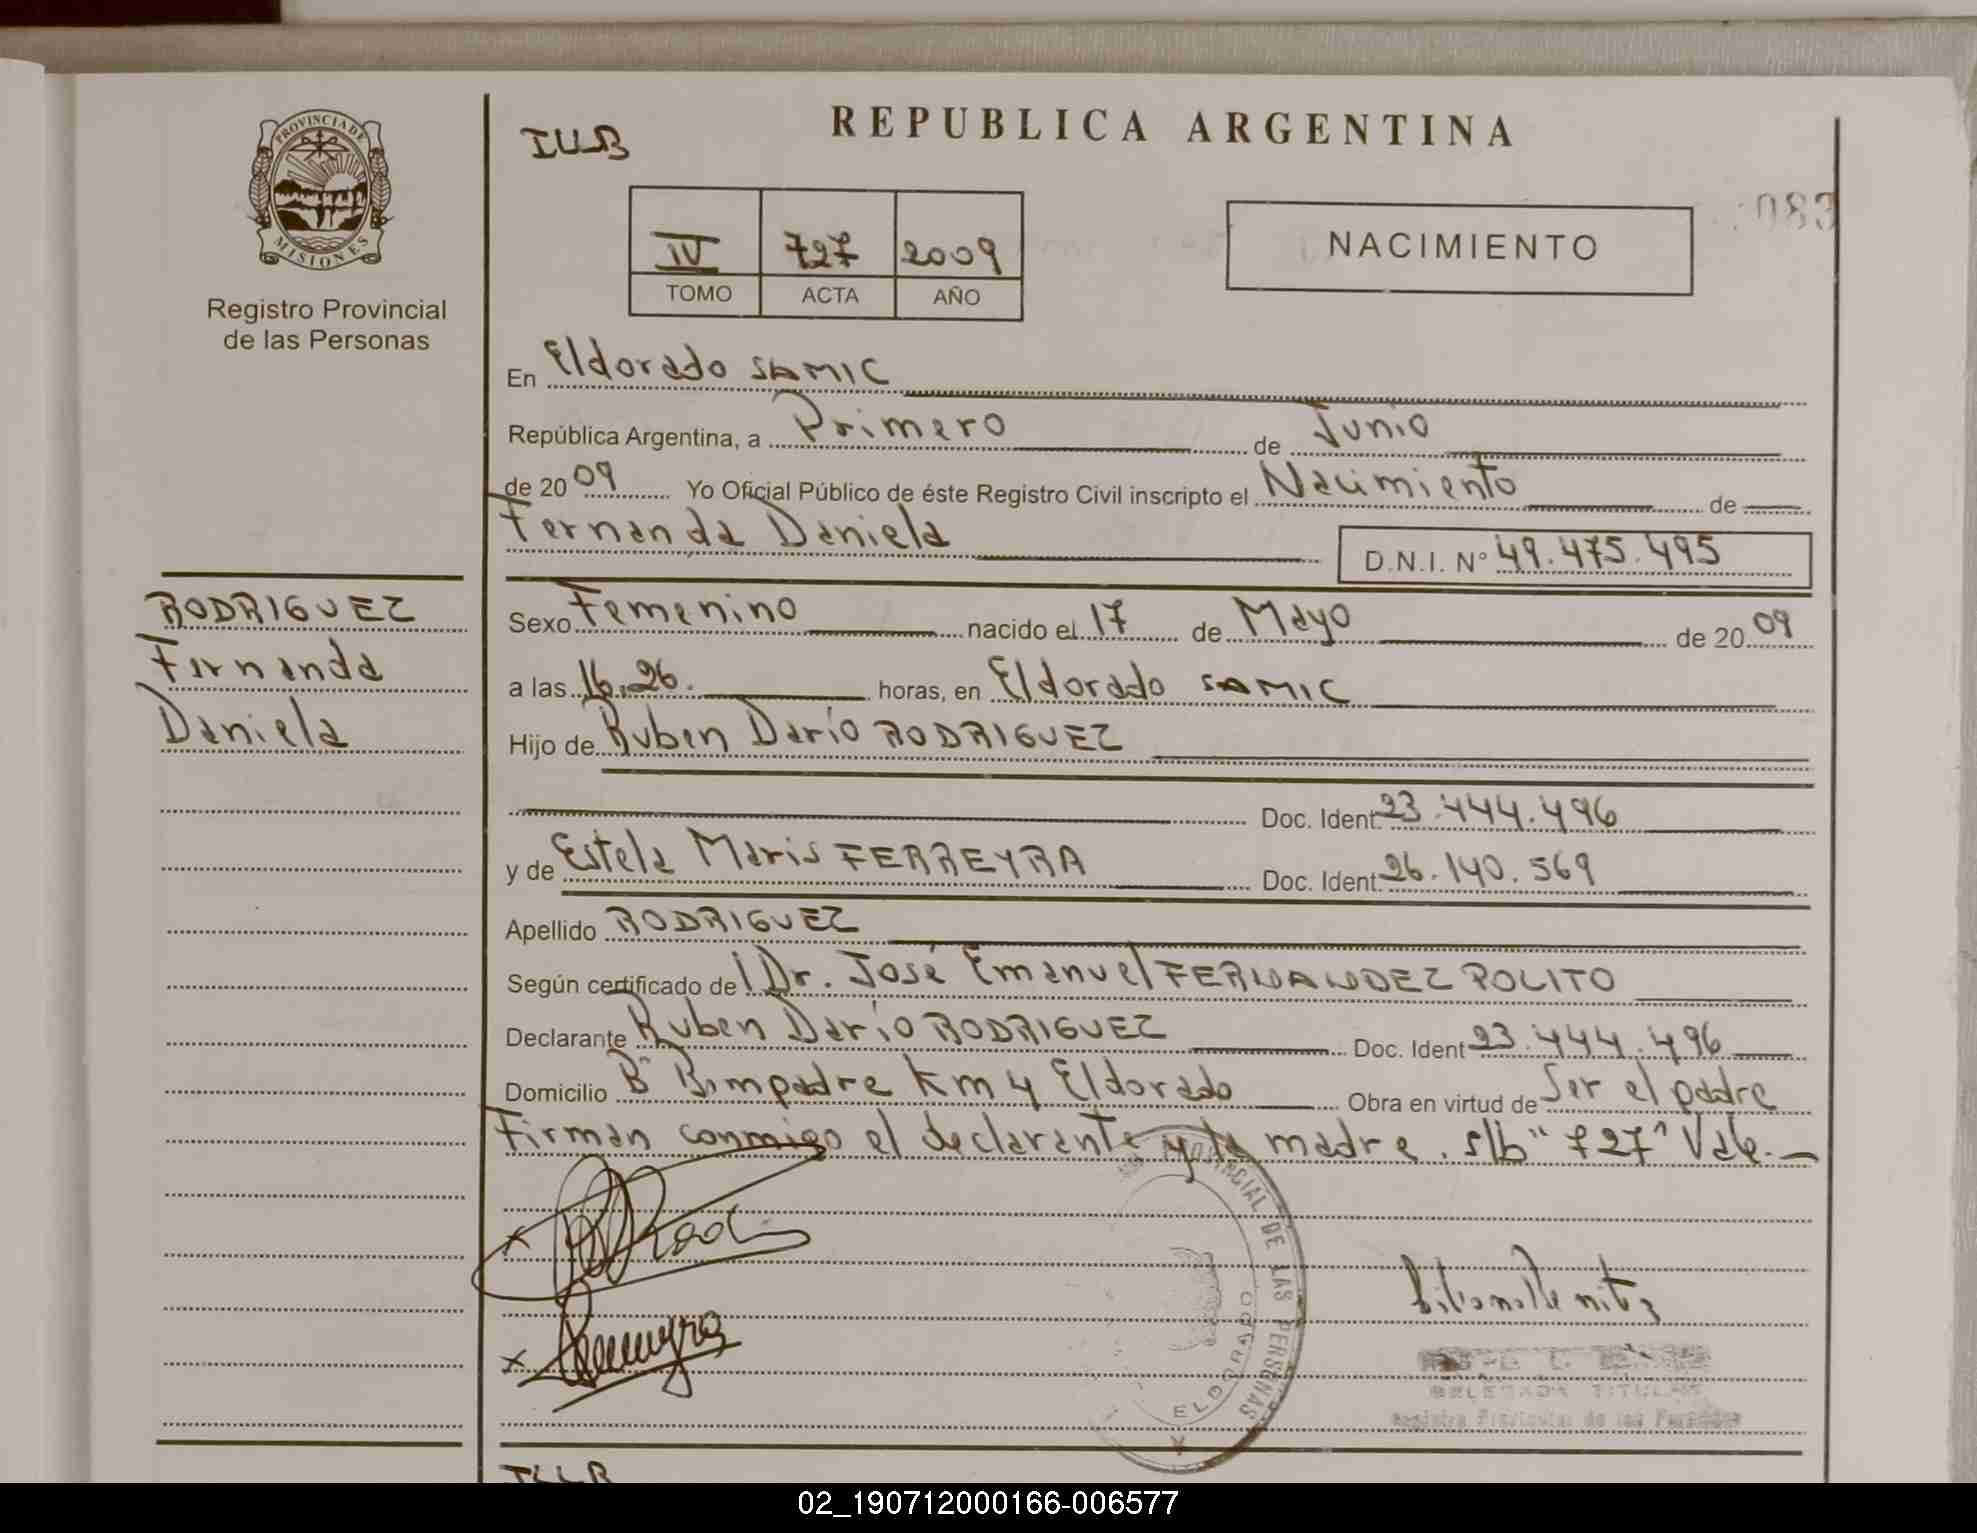 PROVINCIA DE
MISIONES
Registro Provincial
de las Personas
RODRIGUEZ
Fernanda
Daniela
REPUBLICA ARGENTINA
IV 727 2009
TOMO ACTA AÑO
NACIMIENTO
083
En Eldorado SAMIC
República Argentina, a Primero de Junio
de 2009 Yo Oficial Público de éste Registro Civil inscripto el Nacimiento de
Fernanda Daniela D.N.I. Nº 49.475.495
Sexo Femenino nacido el 17 de Mayo de 2009
a las 16.26. horas, en Eldorado SAMIC
Hijo de Ruben Darío RODRIGUEZ
Doc. Ident. 23.444.496
y de Estela Maris FERREYRA Doc. Ident. 26.140.569
Apellido RODRIGUEZ
Según certificado de l Dr. José Emanuel FERNANDEZ POLITO
Declarante Ruben Darío RODRIGUEZ Doc. Ident 23.444.496
Domicilio Bº Bompadre Km 4 Eldorado Obra en virtud de Ser el padre
Firman conmigo el declarante y la madre. s/b "727" Vale.-
PROVINCIAL DE LAS PERSONAS
ELDORADO
DELEGADA TITULAR
Registro Provincial de las Personas
02_190712000166-006577